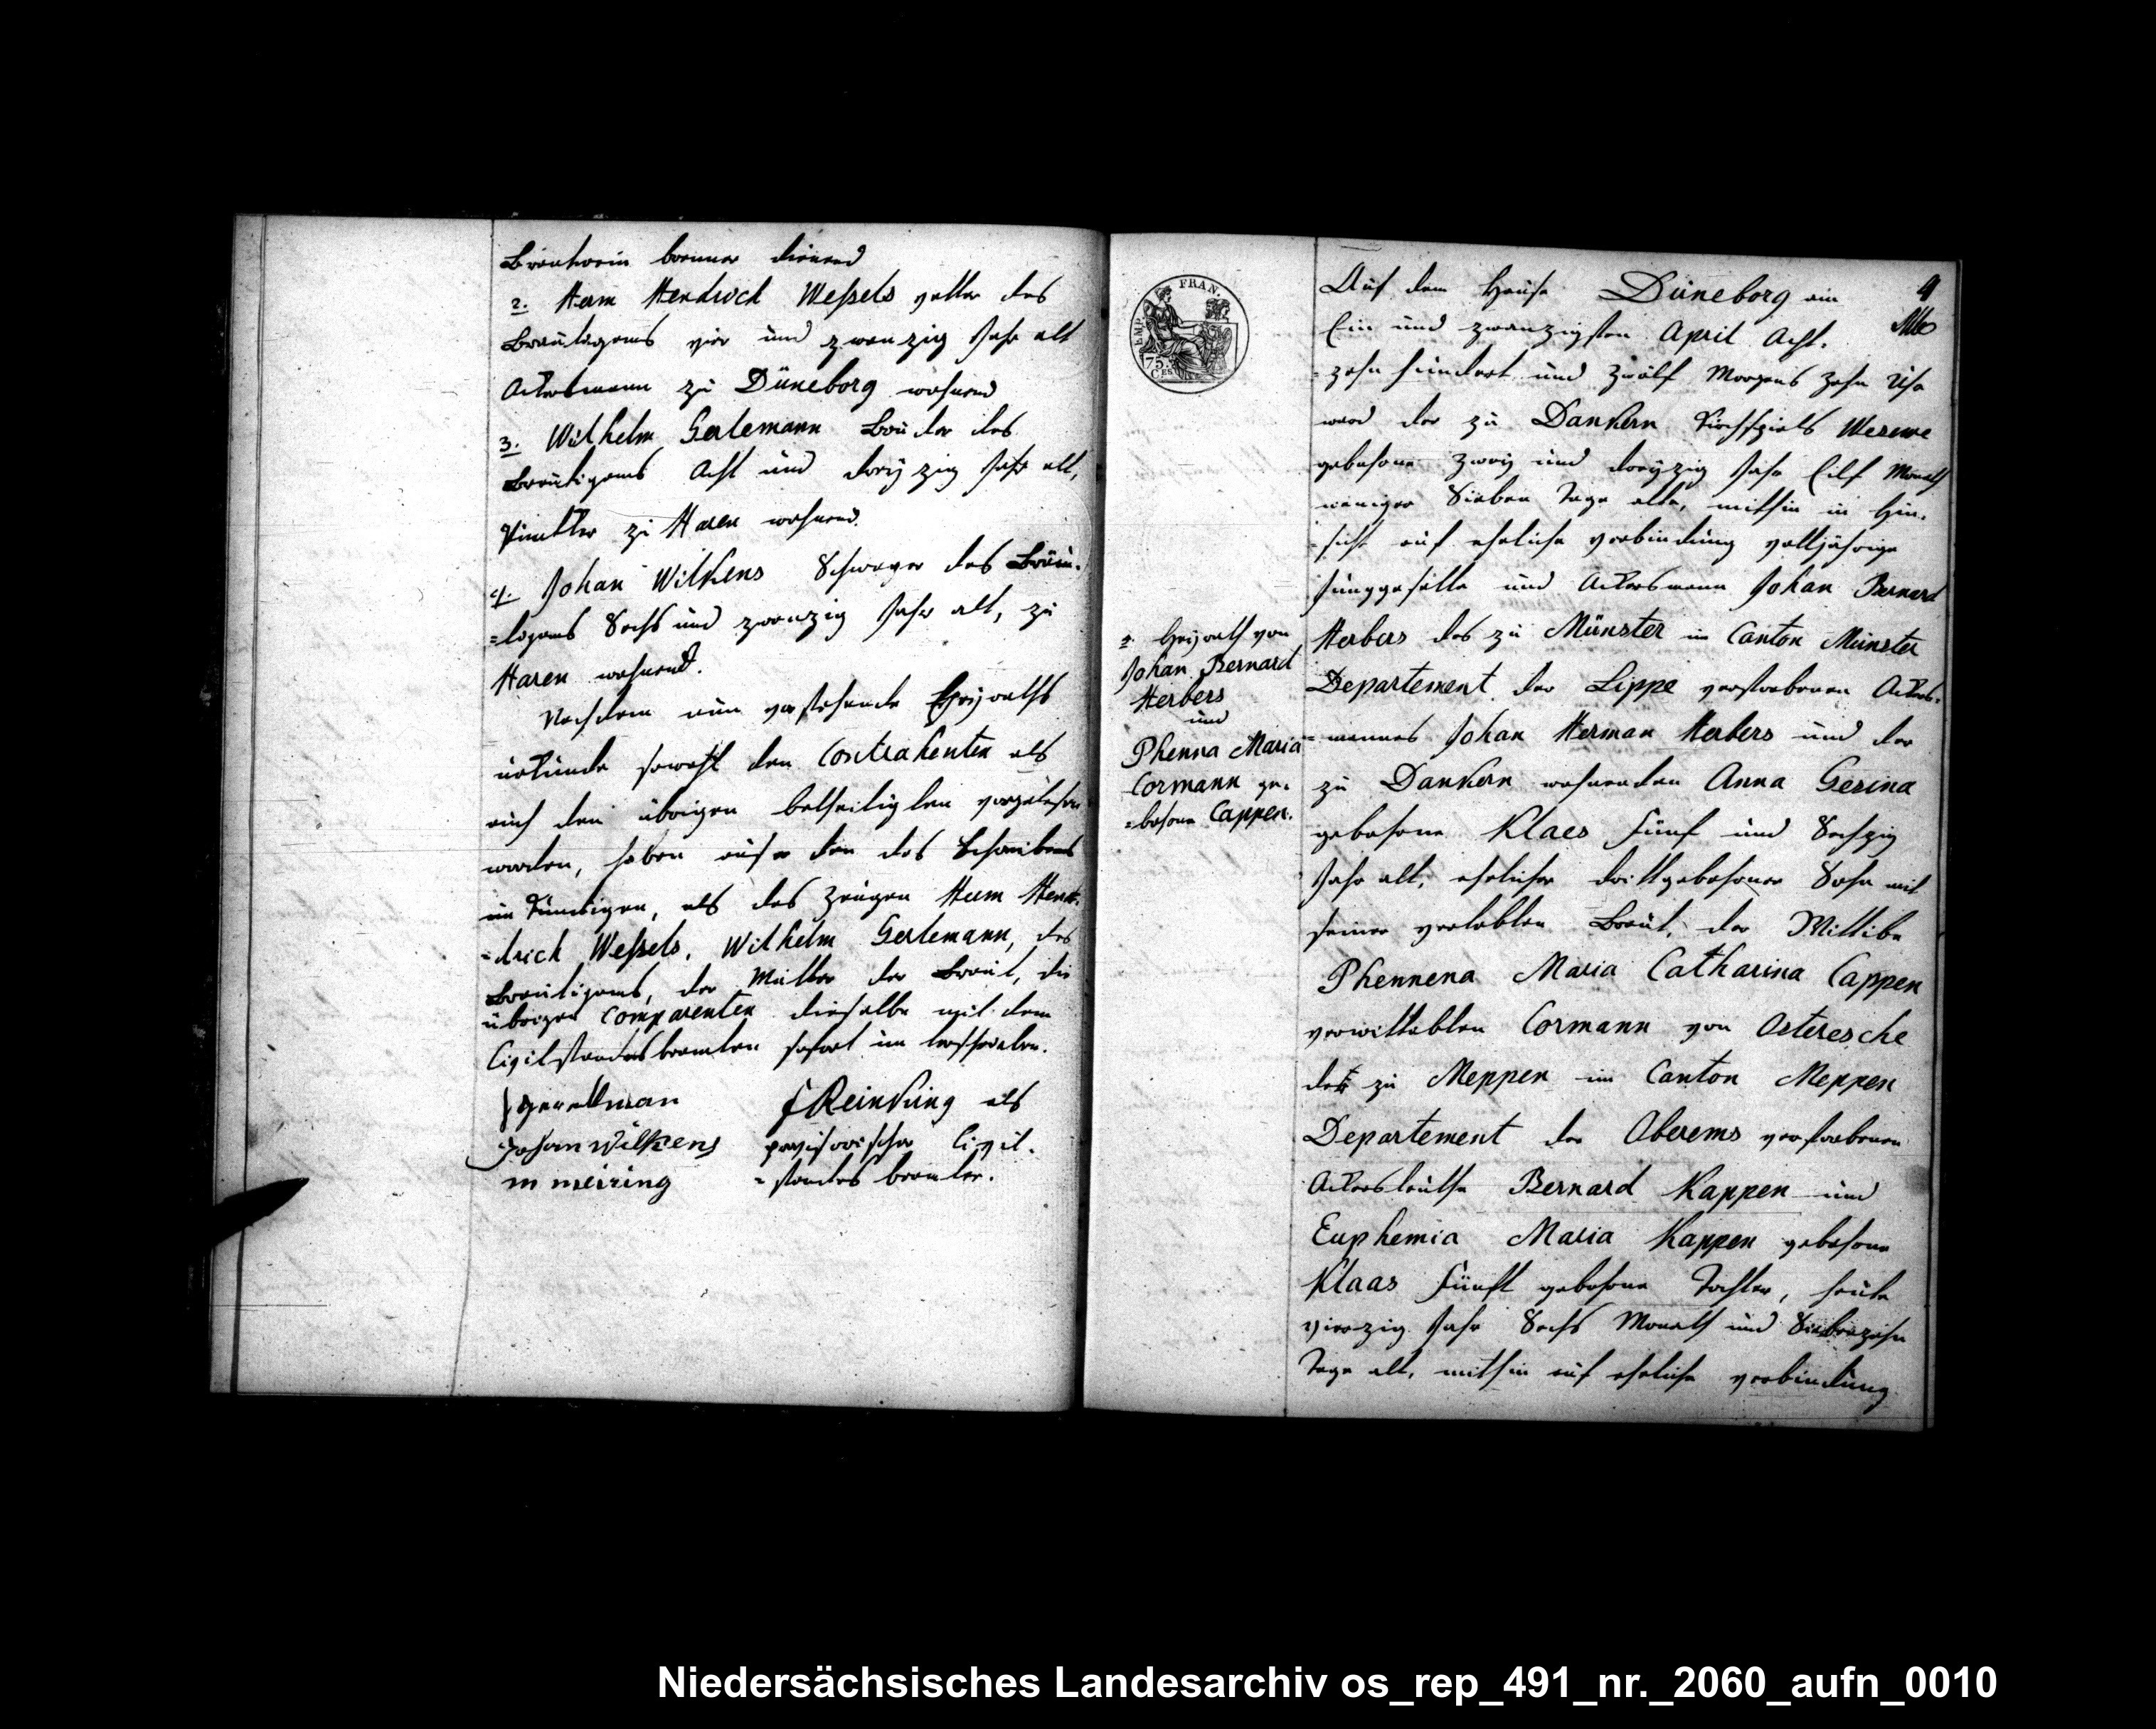 Brantwein brenner dienend
2. Herm Hendrick Weßels vetter des
Bräutigams vier und zwanzig Jahr alt
Ackersmann zu Düneborg wohnend
3. Wilhelm Gerlemann Bruder des
Bräutigams Acht und dreyzig Jahr alt,
zu Haren wohnend.
4. Johan Wilkens Schwager des Bräu-
=tigams Sechs und zwanzig Jahr alt, zu
Haren wohnend.
Nachdem nun vorstehende Heyraths
urkunde sowohl den Contrahenten als
auch den übrigen betheiligten vorgelesen
worden, haben außer den des Schreibens
unkundigen, als des Zeugen Herm Hen-
=drich Weßels, Wilhelm Gerlemann, des
Bräutigams, der Mutter der Braut, die
übrigen Comparenten dieselbe mit dem
Civilstandsbeamten sofort unterschrieben.
Johan Wilkens
m meiring
Reinking als
provisorischer Civil-
=standes beamter.
FRAN.
EMP.
75.
4
Auf dem Hause Düneborg am
Ein und zwanzigsten April Acht-
=zehn hundert und zwölf Morgens zehn Uhr
ward der zu Dankern Kirchspiels Wesuwe
gebohrne zwey und dreyzig Jahr Eilf Monath
weniger Sieben Tage alte, mithin in Hin-
=sicht auf eheliche verbindung volljährige
Junggeselle und Ackersmann Johan Bernard
Herbers des zu Münster im Canton Münster
Departement der Lippe verstorbenen Ackers-
=mannes Johan Herman Herbers und der
zu Dankern wohnenden Anna Gesina
gebohrne Klaes fünf und Sechzig
Jahr alt, ehelicher drittgebohrner Sohn mit
seiner verlobten Braut, der Wittibe
Phennena Maria Catharina Cappen
verwittibten Cormann von Osteresche
der zu Meppen im Canton Meppen
Departement der Oberems verstorbenen
Ackersleuthe Bernard Kappen und
Euphemia Maria Kappen gebohrne
Klaas fünft gebohrne Tochter, heute
vierzig Jahr Sechs Monath und Siebenzehn
Tage alt, mithin auf eheliche verbindung
2. Heyrath von
Johan Bernard
Herbers
und
Phenna Maria
Cormann ge-
=bohrne Cappen.
Niedersächsisches Landesarchiv os_rep_491_nr._2060_aufn_0010